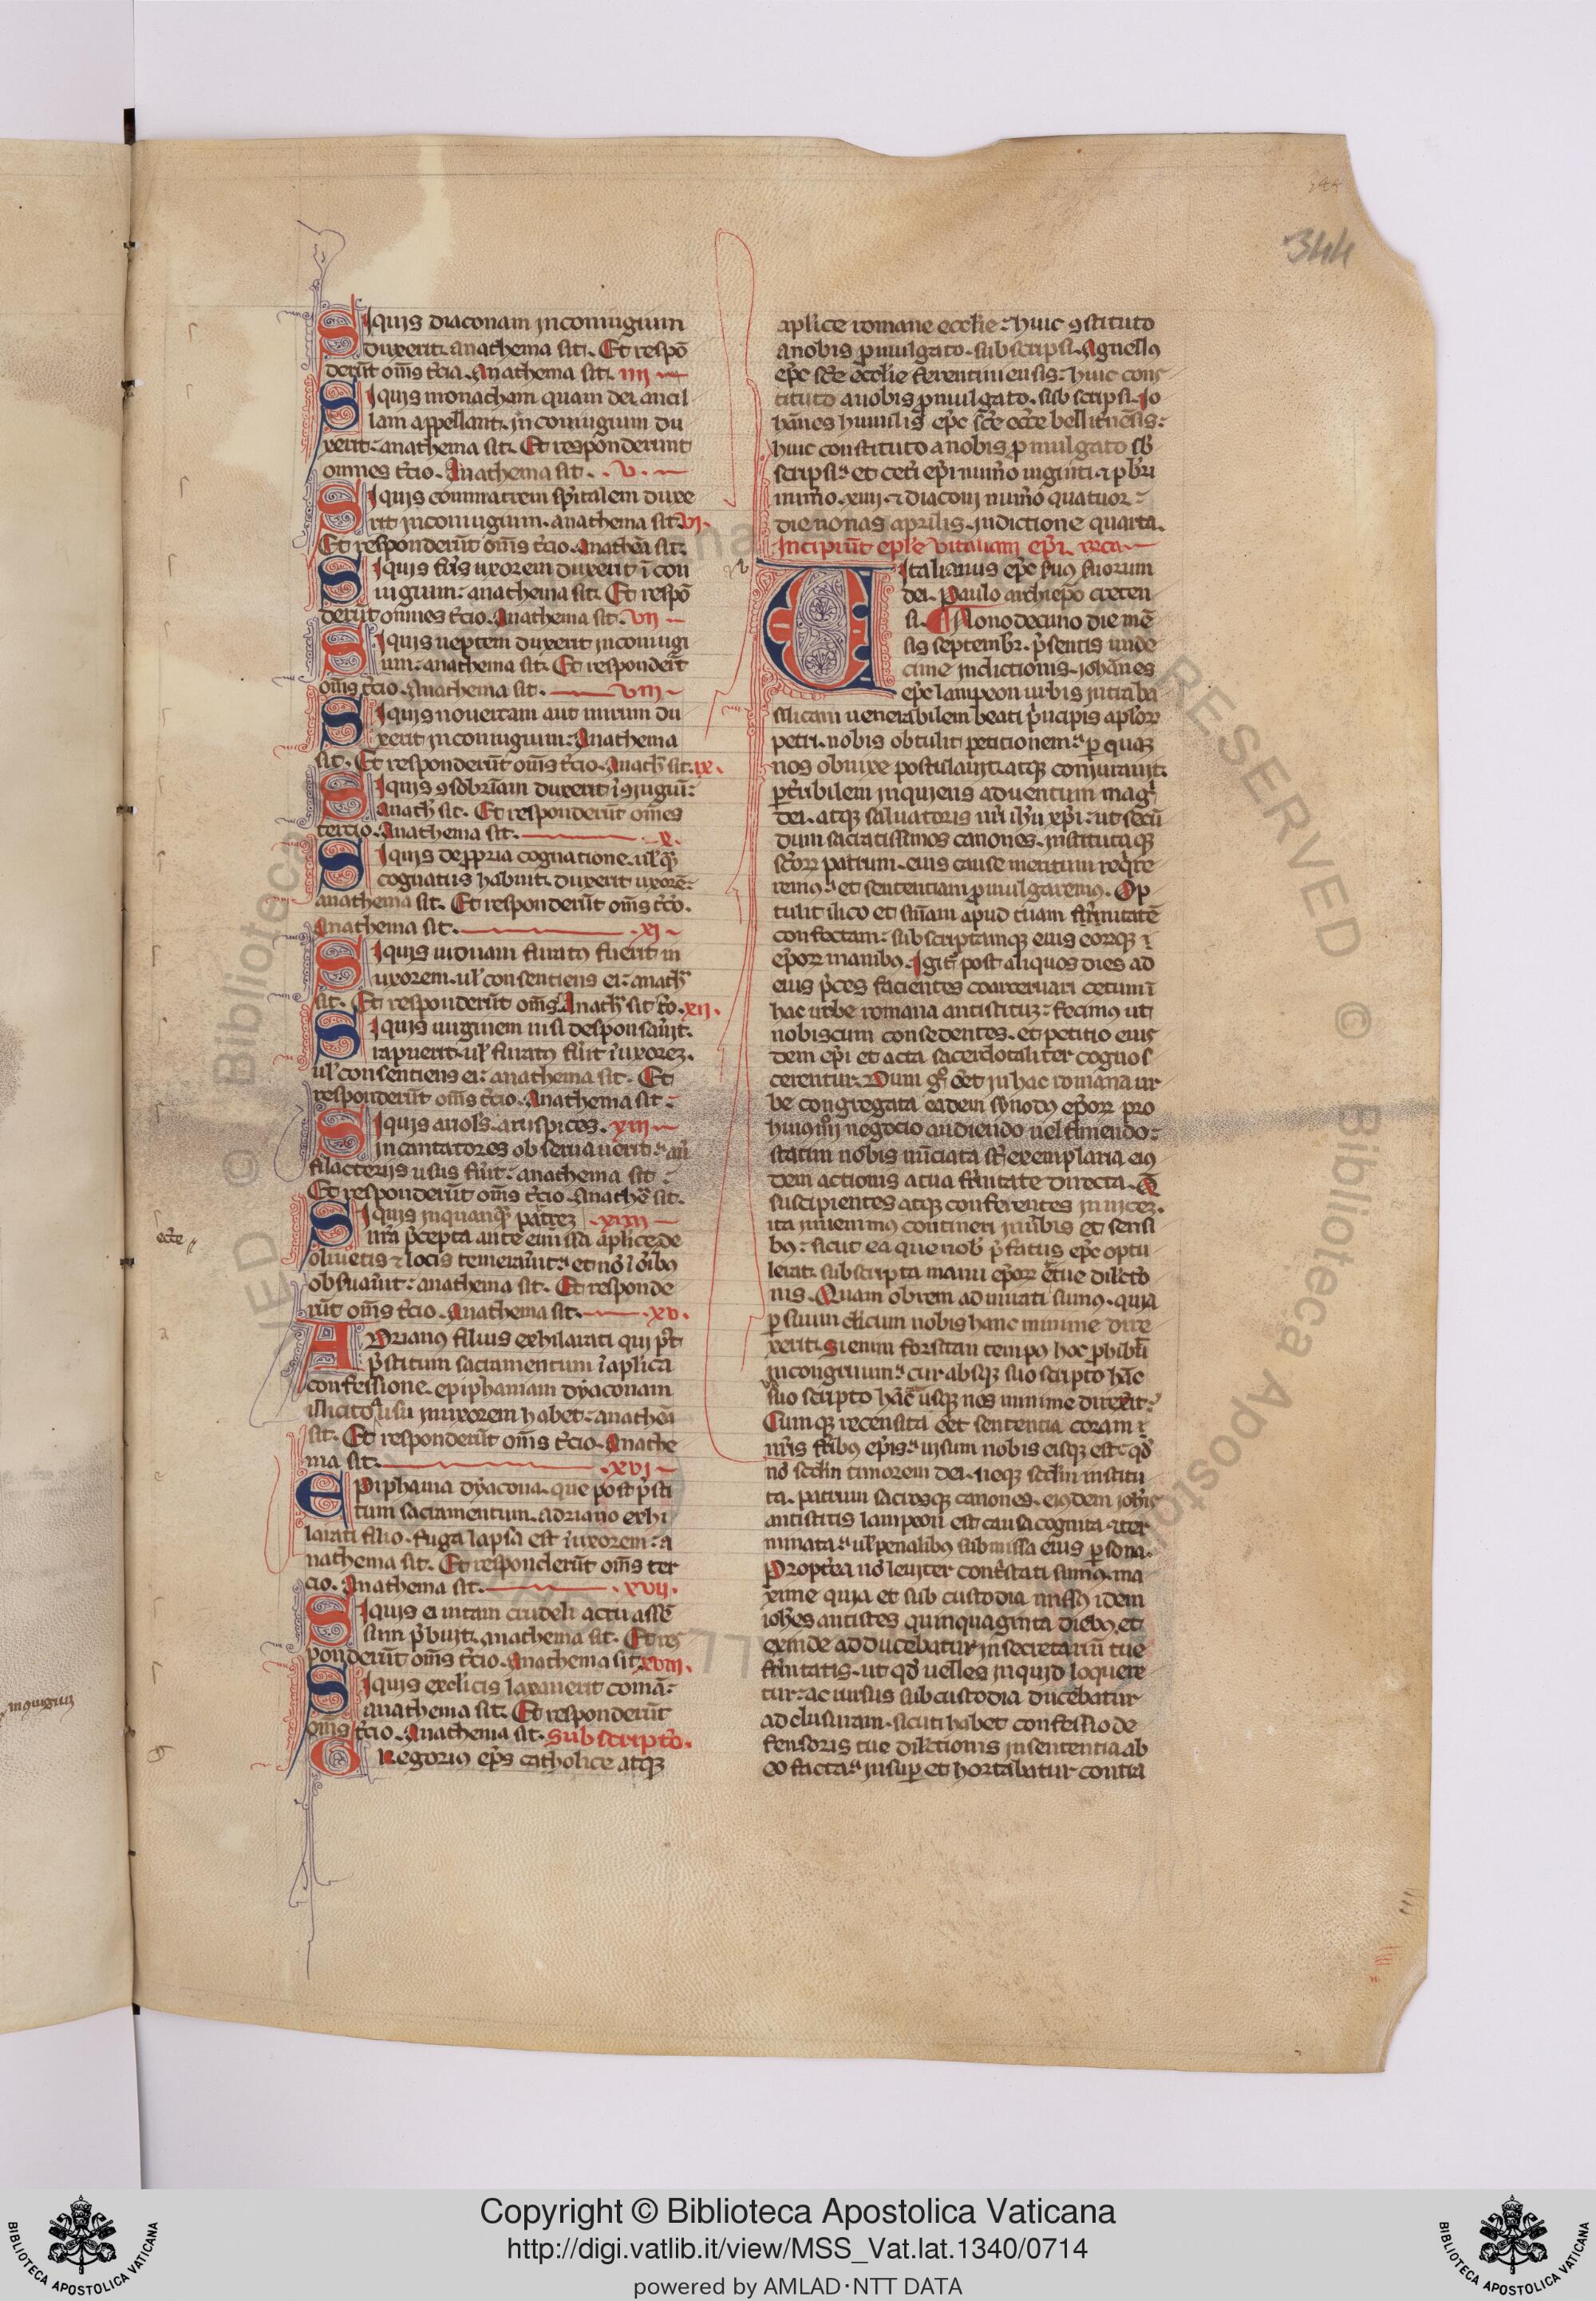 344
Siquis diaconam in coniugium
duxerit. anathema sit. Et respō
derūt om̄s t̄cio. Anathema sit. iiii
Siquis monacham quam dei ancil
lam appellant. in coniugium du
xerit. anathema sit. Et responderunt
omnes t̄cio. Anathema sit. v.
Siquis commatrem sp̄italem duxe
rit in coniugium. anathema sit. vi.
Et responderūt om̄s t̄cio. Anathēa sit.
Siquis fr̄is uxorem duxerit ī con
iugium: anathema sit. Et respō
derūt om̄nes t̄cio. Anathema sit. vii
Siquis neptem duxerit in coniugi
um: anathema sit. Et responder̄t
om̄s t̄cio. Anathema sit. viii
Siquis nouercam aut nurum du
xerit in coniugium: Anathema
sit. Et responderūt om̄s t̄cio. Anath̄ sit. ix.
Siquis ɔsobrinam duxerit ī ɔiugiū:
Anath̄ sit. Et responderūt om̄es
tercio. Anathema sit. x.
Siquis de ꝓpria cognatione. ul̄ q̄
cognatus habuit. duxerit uxorē:
anathema sit. Et responderūt om̄s t̄cio.
Anathema sit. xi
Siquis uiduam furatꝰ fuerit in
uxorem. ul̄ consentiens ei: anath̄
sit. Et responderūt om̄s Anath̄ sit t̄cio. xii.
Siquis uirginem nisi desponsauīt.
rapuerit. ul̄ furatꝰ fūit ī uxorez.
ul̄ consentiens ei: anathema sit. Et
responderūt om̄s t̄cio. Anathema sit:
Siquis ariol̄s. aruspices. xiii
incantatores obseruauerit: aut̄
filacteriis usus fūit: anathema sit:
Et responderūt om̄s t̄cio. Anathē sit.
Siquis inquanq̄ patrez xiiii
n̄ra p̄cepta ante emissa aplice de
oliuetis ⁊ locis temerauīt: et nō ī oībꝰ
obseruauīt: anathema sit. Et responde
rūt om̄s t̄cio. Anathema sit. xv.
Adrianꝰ filius exhilarati qui p̄t
p̄stitum sacramentum ī aplica
confessione. epiphaniam dyaconam
illicito usu in uxorem habet: anathēa
sit. Et responderūt om̄s t̄cio. Anathe
ma sit. xvi
Epiphania dyacona. que post p̄sti
tum sacramentum. adriano exhi
larati filio. fuga lapsa est ī uxorem: a
nathema sit. Et responderūt om̄s ter
cio. Anathema sit. xvii.
Siquis ei in tam crudeli actu assē
sum p̄buit. anathema sit. Et res
ponderūt om̄s t̄cio. Anathema sit xviii.
Siquis ex cl̄icis laxauerit comā:
anathema sit. Et responderūt
om̄s t̄cio. Anathema sit. Subscriptō.
Gregoriꝰ ep̄s catholice atqꝫ
aplice romane eccl̄ie: huic ɔstituto
a nobis ꝓmulgato. subscripsi. Agnellꝰ
ep̄c sc̄e eccl̄ie ferentiniensis: huic cons
tituto a nobis ꝓmulgato. subscripsi. Jo
hānes humilis ep̄c sc̄e ecc̄e bellitnēsis:
huic constituto a nobis ꝓmulgato sb̄
scripsi: et cet̄i ep̄i num̄o uiginti. ⁊ p̄bri
num̄o. xiiii. ⁊ diaconi num̄o quatuor:
die nonas aprilis. indictione quarta.
Incipiūt ep̄le Vitaliani ep̄i.
Vitalianus ep̄c seruꝰ seruorum
dei. Paulo archiepō creten
si. Nonodecimo die mē
sis septembr̄. p̄sentis unde
cime indictionis. johānes
ep̄c lampeon urbis intra ba
silicam uenerabilem beati p̄ncipis aplōꝝ
petri. nobis obtulit petitionem: ꝑ quaꝫ
nos obnixe postulauit. atqꝫ coniurauit.
ꝑ t̄ribilem inquiens aduentum maḡ
dei. atqꝫ saluatoris n̄ri ih̄u xp̄i: ut secū
dum sacratissimos canones. institutaqꝫ
sc̄oꝝ patrum. eius cause meritum req̄re
remꝰ: et sententiam ꝓmulgaremꝰ. Op
tulit ilico et sn̄iam apud tuam fr̄nitatē
confectam: subscriptamqꝫ eius eorūqꝫ ī
ep̄oꝝ manibꝰ. Igit̄ post aliquos dies ad
eius p̄ces facientes coaceruari cetum ī
hac urbe romana antistituꝫ: fecimꝰ ut
nobiscum consedentes. et petitio eius
dem ep̄i et acta sacerdotaliter cognos
cerentur. Dum g̊ ēet in hac romana ur
be congregata eadem synodꝰ ep̄oꝝ pro
huiꝰmōi negocio audiendo uel finiendo:
statim nobis nūciata st̄ exemplaria eiꝰ
dem actionis a tua fr̄nitate directa. Q̄
suscipientes atqꝫ conferentes in inicez.
ita inuenimꝰ contineri in ūbis et sensi
bꝰ: sicut ea que nob̄ p̄fatus ep̄c optu
lerat. subscripta manu ep̄oꝝ et tue dilectō
nis. Quam obrem admirati sumꝰ. quia
ꝑ suum cl̄icum nobis hanc minime dire
xerit. Si enim forsitan tempꝰ hoc ꝓhibuit
incongruum: cur absqꝫ suo scripto hāc
suo scripto hāc usqꝫ nos minime direxit:
Cumqꝫ recensita ēet sententia coram ī
n̄ris fr̄ibꝰ ep̄is: uisum nobis eisqꝫ est: qd̄
nō scd̄m timorem dei. neqꝫ scd̄m institu
ta. patrum sacrosqꝫ canones. eiꝰdem joh̄is
antistitis lampeon est causa cognita. ⁊ ter
minata: ul̄ penalibꝰ submissa eius ꝑsona.
Propt̄ea nō leuiter cont̄stati sumꝰ. ma
xime quia et sub custodia missꝰ idem
ioh̄es antistes quinquaginta diebꝰ. et
exinde ad ducebatur in secretariū tue
fr̄nitatis. ut qd̄ uelles inquid loquere
tur: ac rursus sub custodia ducebatur
ad clusuram. sicuti habet confessio de
fensoris tue dil̄ctionis in sententia ab
eo facta: insuꝑ et hortabatur contra
ecc̄e
Copyright © Biblioteca Apostolica Vaticana
http://digi.vatlib.it/view/MSS_Vat.lat.1340/0714
powered by AMLAD·NTT DATA
BIBLIOTECA APOSTOLICA VATICANA
BIBLIOTECA APOSTOLICA VATICANA